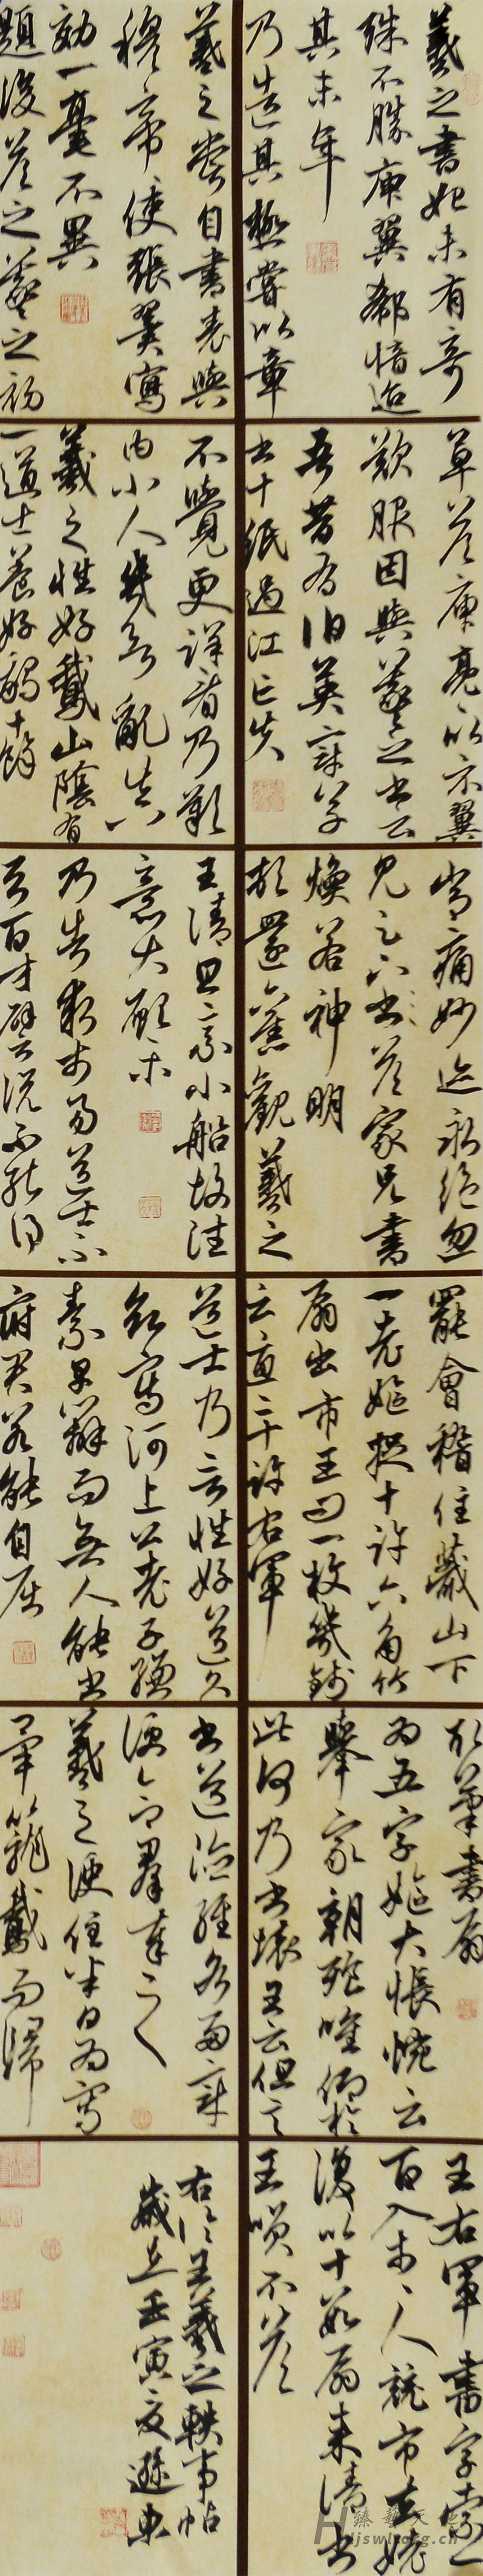 羲之書始未有奇
殊不勝庾翼郗愔迨
其末年
乃造其極嘗以章
草答庾亮亮以示翼
歎服因與羲之書云
吾昔有伯英章草
書十紙過江亡失
常痛妙迹永絕忽
見足下書答家兄書
煥若神明
頓還舊觀羲之
罷會稽住蕺山下
一老嫗捉十許六角竹
扇出市王問一枚幾錢
云直二十許右軍
取筆書扇
為五字嫗大悵惋云
舉家朝飱唯仰於
此何乃書壞王云但言
王右軍書字索一
百入市市人競市去姥
復以十數扇來請書
王笑不答
羲之常自書表與
穆帝使張翼寫
効一毫不異
題後答之羲之初
不覺更詳看乃歎
曰小人幾欲亂真
羲之性好鵞山陰有
一道士養好鵝十餘
王清旦乘小船故往
意大願樂
乃告求市易道士不
與百方譬說不能得
道士乃言性好道久
欲寫河上公老子縑
素早辦而無人能書
府君若能自屈
書道德經各兩章
便合羣奉
羲之便住半日為寫
畢籠鵞而歸
右臨王羲之軼事帖
歲在壬寅之夏遜東
臻藝天
hjswl.org.cn